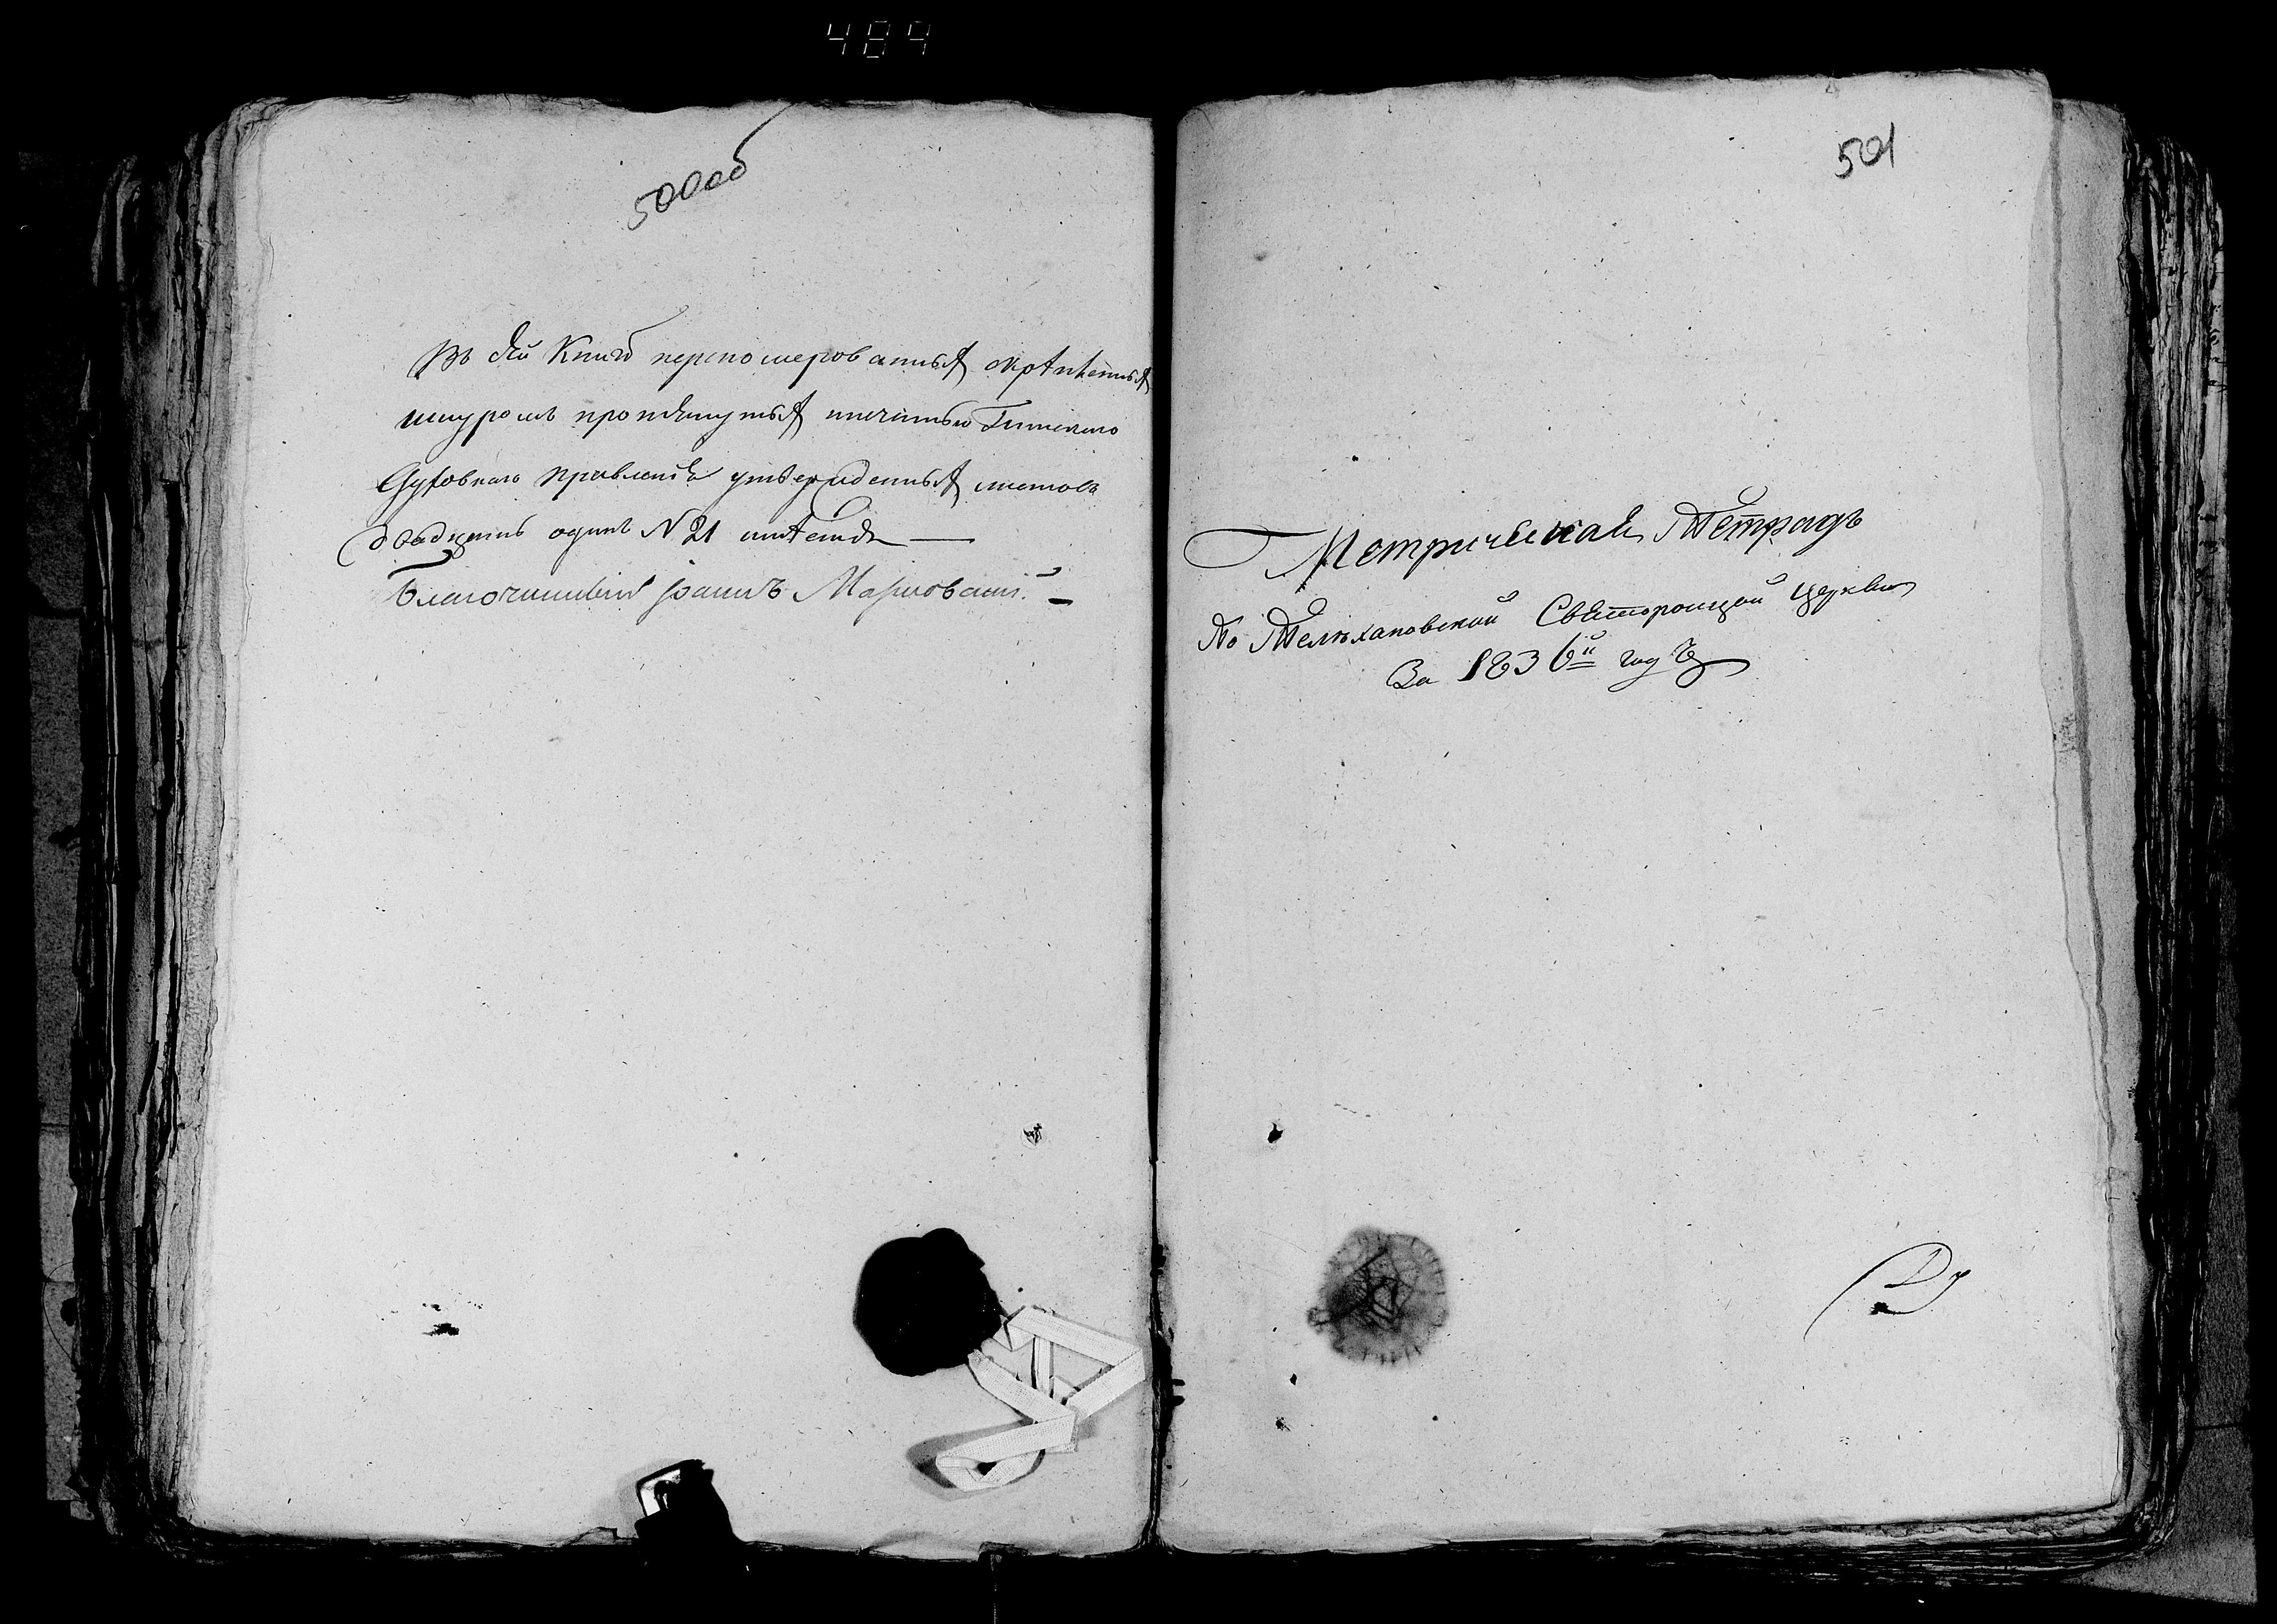 489
500об
Въ сей Книгѣ перномерованныхъ скрѣпленныхъ
шнуромъ протянутыхъ печатью Пинского
Духовнаго правленія утвержденныхъ листовъ
двадцать одинъ N 21
Благочинный Іоаннъ
501
Метрическая Тетрадь
По Телѣхановской Святотроицкой Церкви
За 1836й годъ